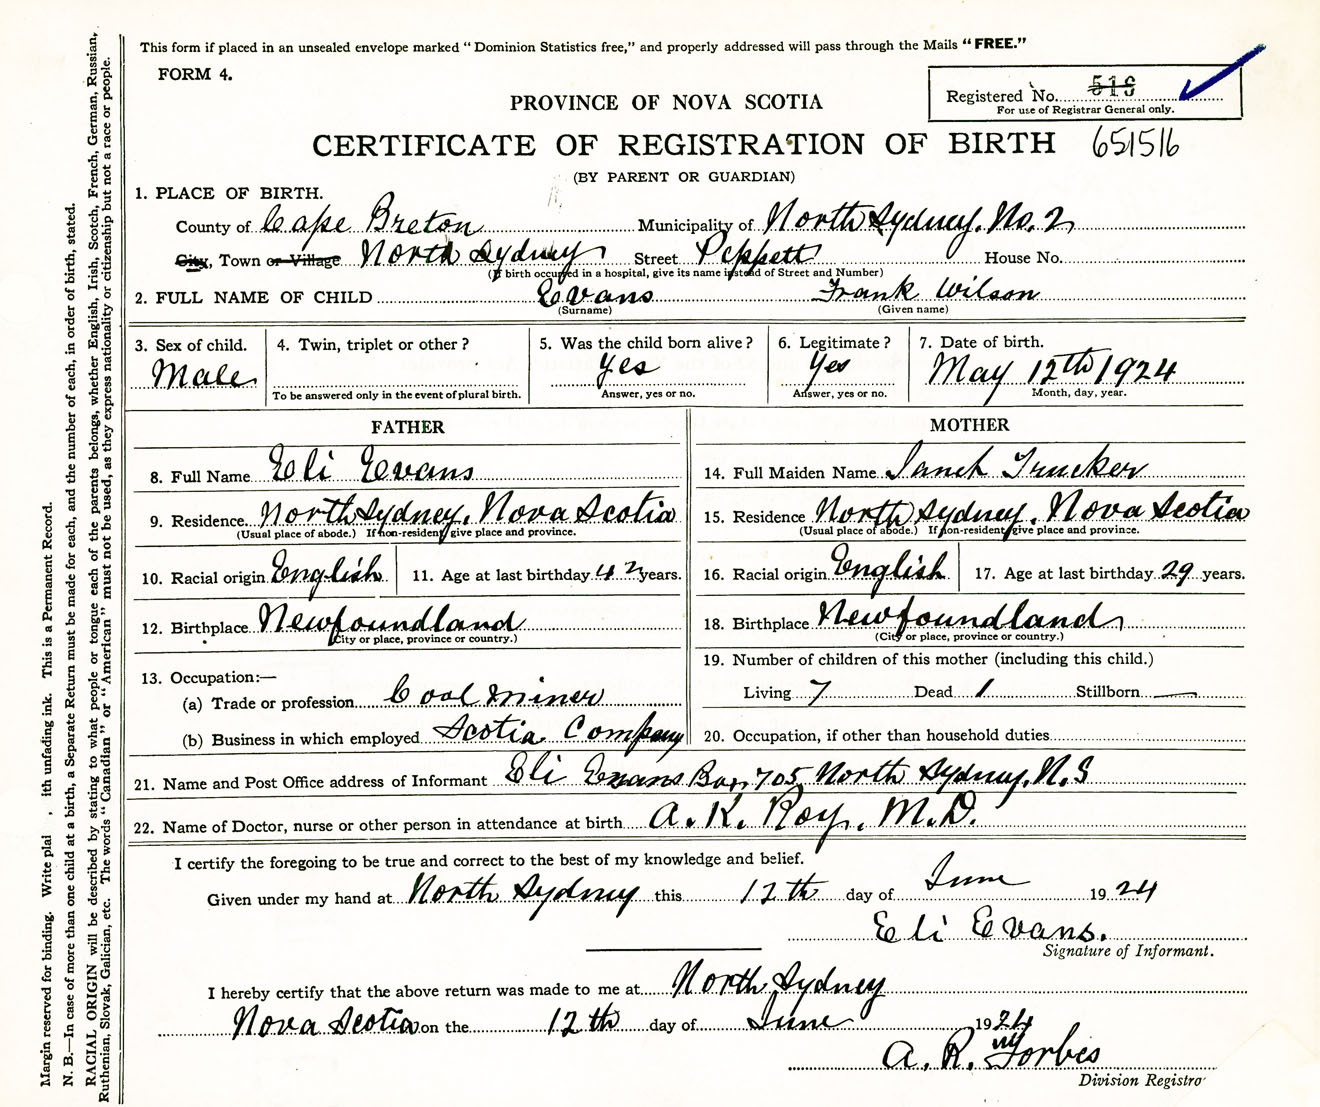 This form if placed in an unsealed envelope marked "Dominion Statistics free," and properly addressed will pass through the Mails "FREE."
FORM 4.
Registered No. 516
For use of Registrar General only.
PROVINCE OF NOVA SCOTIA
CERTIFICATE OF REGISTRATION OF BIRTH 651516
(BY PARENT OR GUARDIAN)
1. PLACE OF BIRTH.
County of Cape Breton Municipality of North Sydney, No. 2
City, Town or Village North Sydney Street Peppett House No.
(If birth occurred in a hospital, give its name instead of Street and Number)
2. FULL NAME OF CHILD Evans Frank Wilson
(Surname) (Given name)
3. Sex of child. 4. Twin, triplet or other? 5. Was the child born alive? 6. Legitimate? 7. Date of birth.
Male Yes Yes May 12th 1924
To be answered only in the event of plural birth. Answer, yes or no. Answer, yes or no. Month, day, year.
FATHER MOTHER
8. Full Name Eli Evans 14. Full Maiden Name Janet Trucker
9. Residence North Sydney, Nova Scotia 15. Residence North Sydney, Nova Scotia
(Usual place of abode.) If non-resident, give place and province. (Usual place of abode.) If non-resident, give place and province.
10. Racial origin English 11. Age at last birthday 42 years. 16. Racial origin English 17. Age at last birthday 29 years.
12. Birthplace Newfoundland 18. Birthplace Newfoundland
(City or place, province or country.) (City or place, province or country.)
13. Occupation:— 19. Number of children of this mother (including this child.)
(a) Trade or profession Coal Miner Living 7 Dead 1 Stillborn —
(b) Business in which employed Scotia Company 20. Occupation, if other than household duties
21. Name and Post Office address of Informant Eli Evans Box 705 North Sydney, N.S
22. Name of Doctor, nurse or other person in attendance at birth A. K. Roy, M.D.
I certify the foregoing to be true and correct to the best of my knowledge and belief.
Given under my hand at North Sydney this 12th day of June 1924
Eli Evans.
Signature of Informant.
I hereby certify that the above return was made to me at North Sydney
Nova Scotia on the 12th day of June 1924
A. R. Forbes
Division Registra
Margin reserved for binding. Write plai , ith unfading ink. This is a Permanent Record.
N. B.—In case of more than one child at a birth, a Separate Return must be made for each, and the number of each, in order of birth, stated.
RACIAL ORIGIN will be described by stating to what people or tongue each of the parents belongs, whether English, Irish, Scotch, French, German, Russian,
Ruthenian, Slovak, Galician, etc. The words "Canadian" or "American" must not be used, as they express nationality or citizenship but not a race or people.